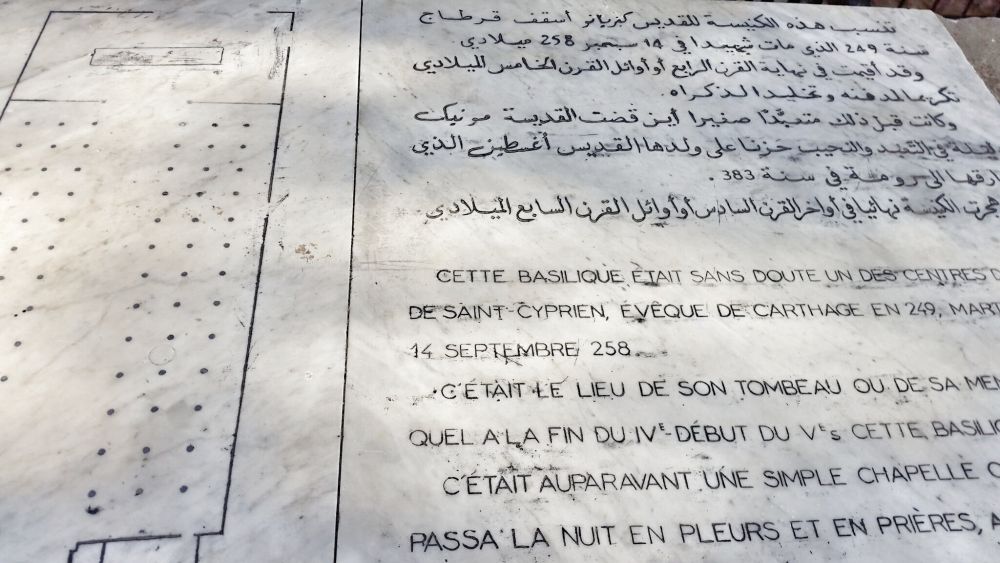 تنسب هذه الكنيسة للقديس كبريانو أسقف قرطاج
سنة 249 الذي مات شهيدا في 14 سبتمبر 258 ميلادي
وقد أقيمت في نهاية القرن الرابع أو أوائل القرن الخامس الميلادي
تكريما لمدفنه وتخليدا لذكراه
وكانت قبل ذلك متعبّدًا صغيرا أين قضت القديسة مونيك
ليلة في التعبد والنحيب حزنا على ولدها القديس أغسطين الذي
ارقها الى رومة في سنة 383 .
هجرت الكنيسة نهائيا في أواخر القرن السادس أو أوائل القرن السابع الميلادي
CETTE BASILIQUE ÉTAIT SANS DOUTE UN DES CENTRES D
DE SAINT-CYPRIEN, ÉVÊQUE DE CARTHAGE EN 249, MART
14 SEPTEMBRE 258.
C'ÉTAIT LE LIEU DE SON TOMBEAU OU DE SA MEM
QUEL A LA FIN DU IVE-DÉBUT DU VES CETTE BASILIQ
C'ÉTAIT AUPARAVANT UNE SIMPLE CHAPELLE O
PASSA LA NUIT EN PLEURS ET EN PRIÈRES, A